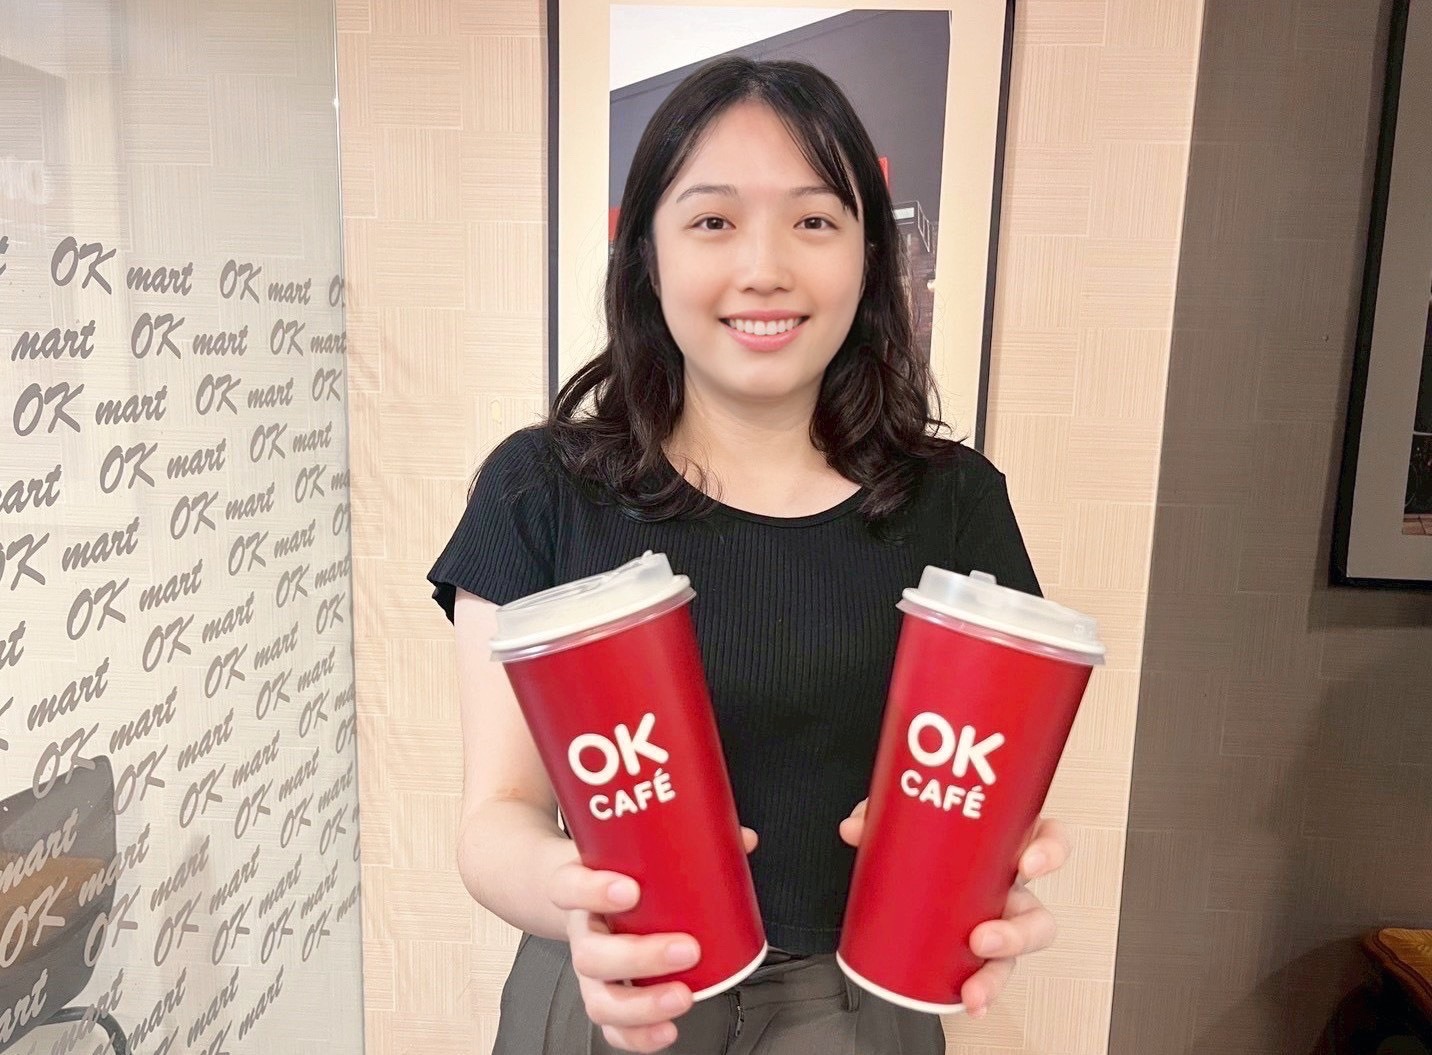 OK mart OK mart
mart OK mart OK mart
OK mart OK mart OK
OK mart OK mart
OK mart OK mart
OK mart OK mart
OK mart OK mart
OK mart OK mart
mart OK mart
OK mart OK mart
OK mart OK mart
OK mart OK mart
mart OK mart OK mart
OK mart OK mart OK mart
OK
CAFÉ
OK
CAFÉ